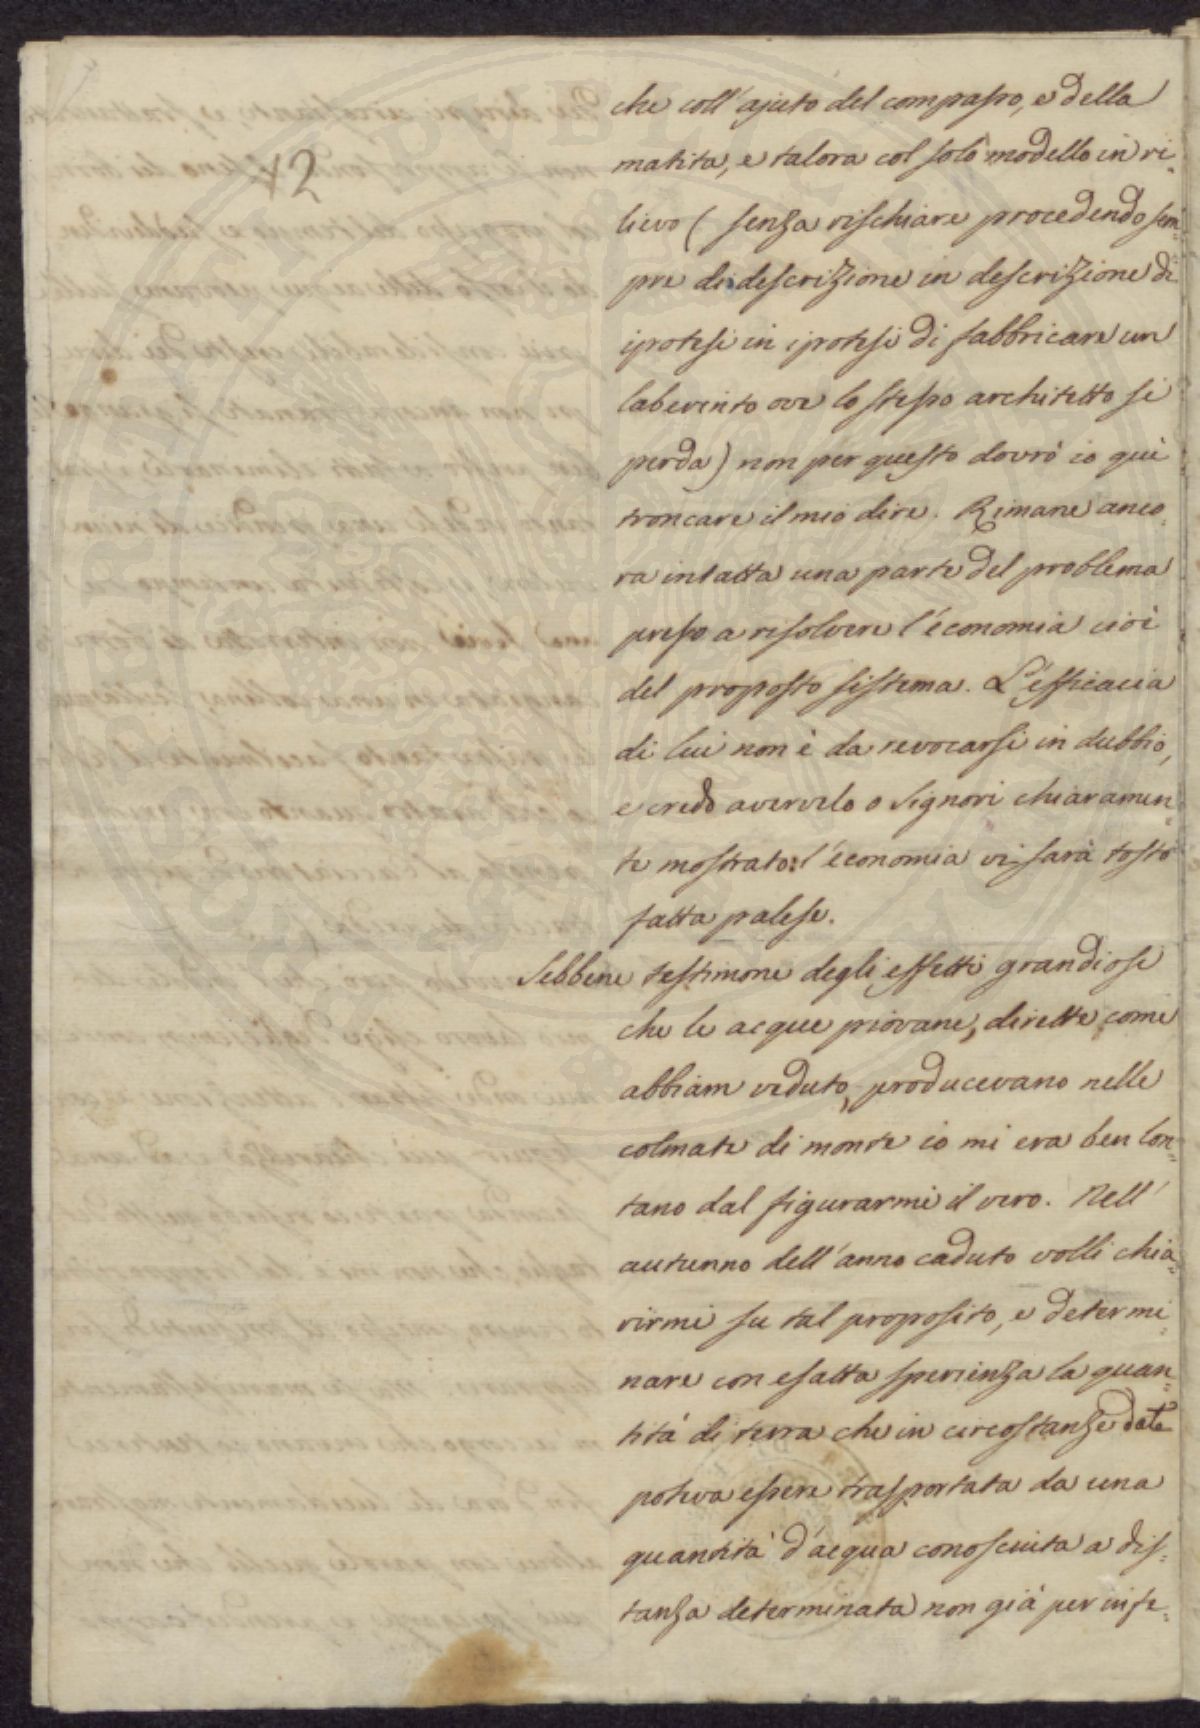 12
che coll'ajuto del compasso, e della
matita, e talora col solo modello in ri-
lievo (senza rischiare procedendo sem-
pre di descrizione in descrizione di
ipotesi in ipotesi di fabbricare un
laberinto ove lo stesso architetto si
perda) non per questo dovrò io quì
troncare il mio dire. Rimane anco-
ra intatta una parte del problema
preso a risolvere l'economia cioè
del proposto sistema. L'efficacia
di lui non è da revocarsi in dubbio,
e credo avervelo o Signori chiaramen-
te mostrato: l'economia vi sarà tosto
fatta palese.
Sebbene testimone degli effetti grandiosi
che le acque piovane, dirette come
abbiam veduto, producevano nelle
colmate di monte io mi era ben lon-
tano dal figurarmi il vero. Nell'
autunno dell'anno caduto volli chia-
rirmi su tal proposito, e determi-
nare con esatta sperienza la quan-
tità di terra che in circostanze date
poteva essere trasportata da una
quantità d'acqua conosciuta a dis-
tanza determinata non già per infe-